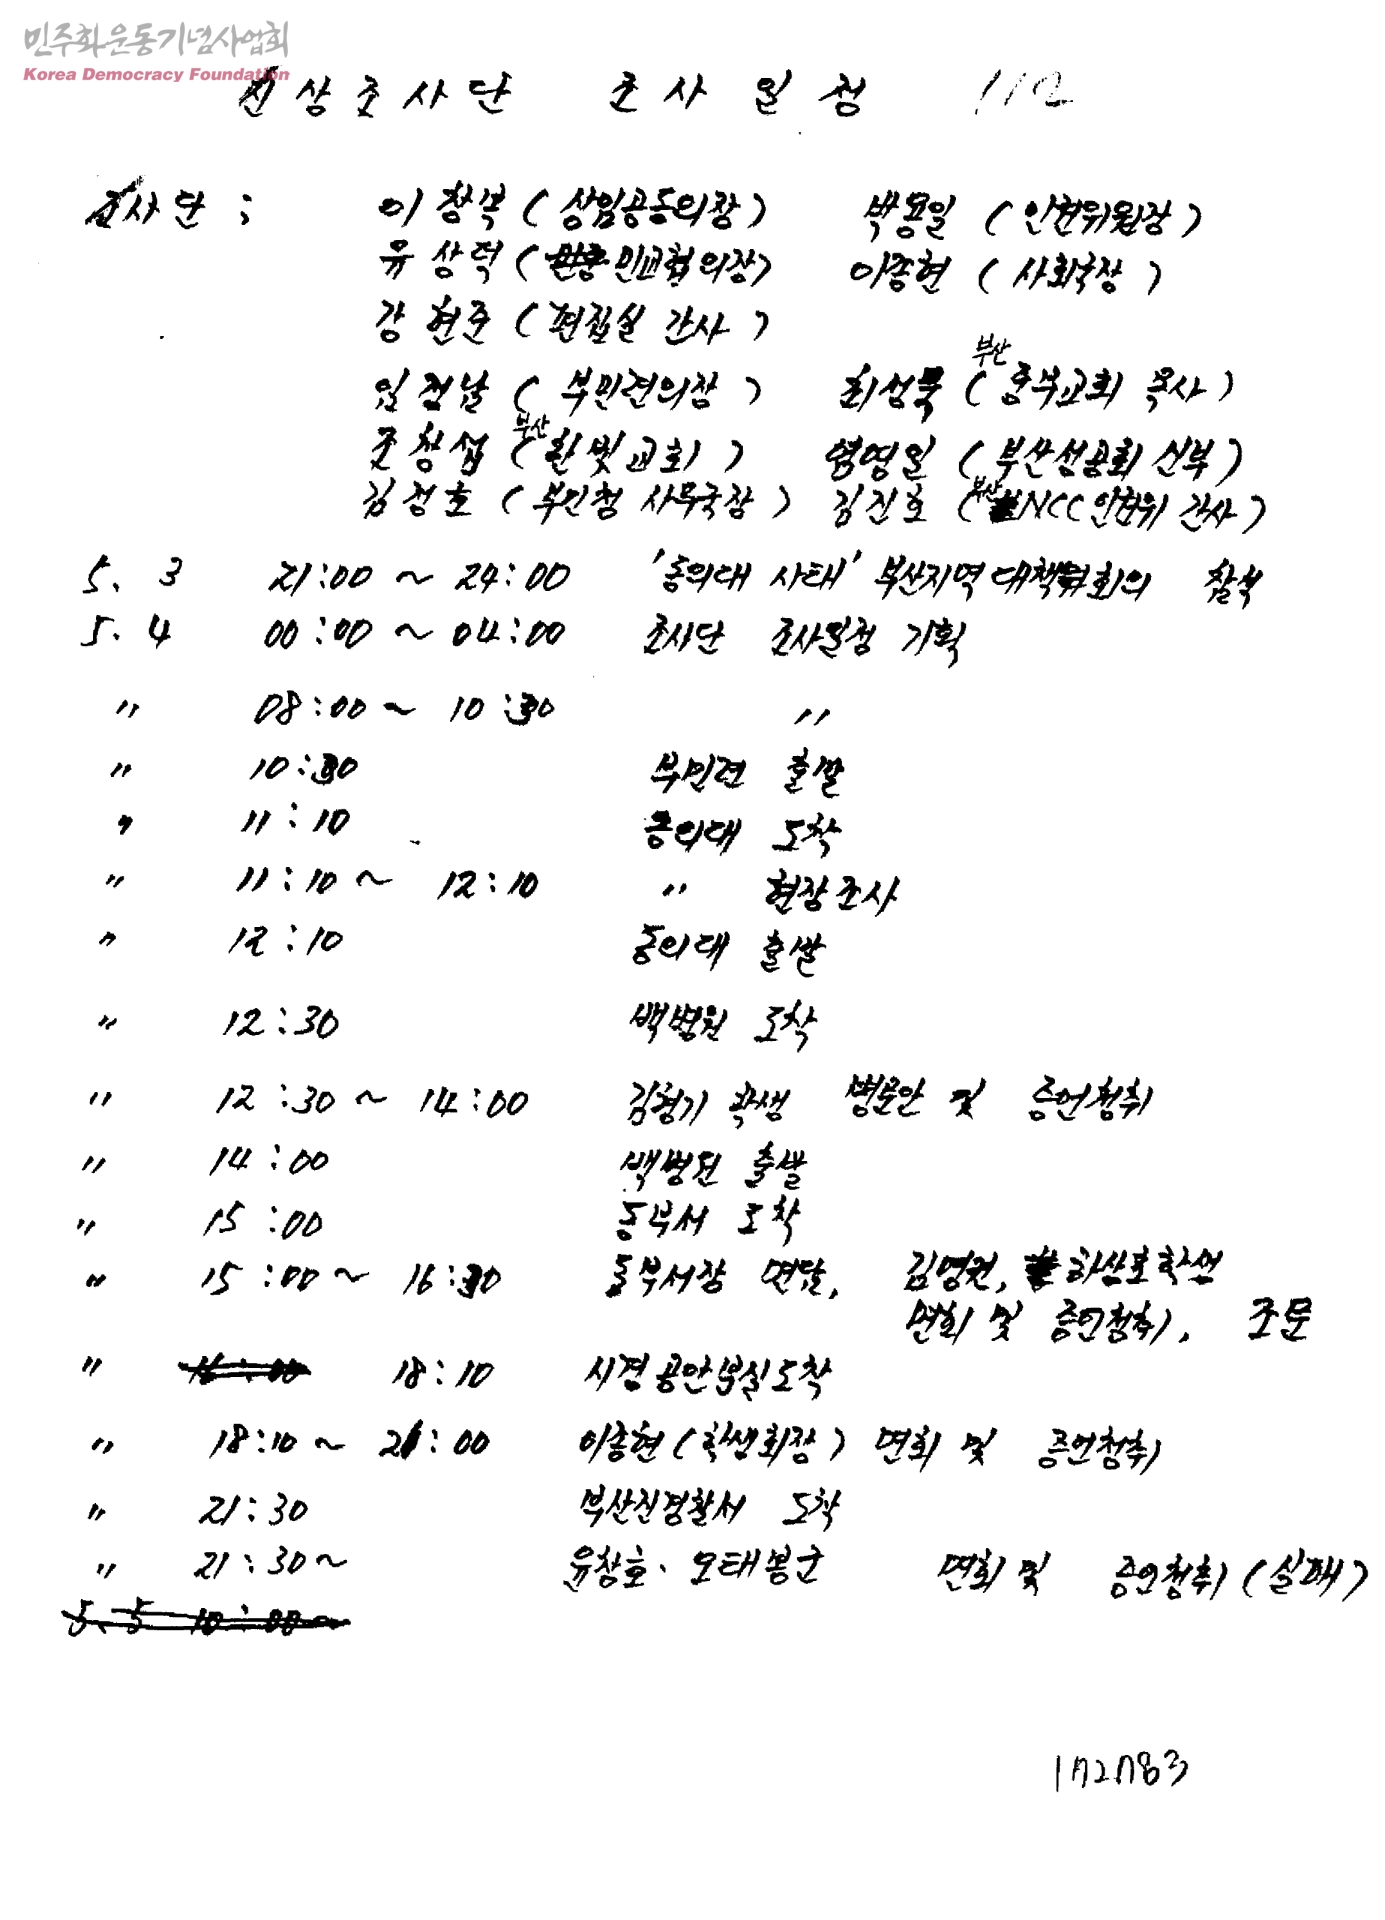 민주화운동기념사업회
Korea Democracy Foundation
진상조사단 조사일정 112
조사단 : 이창복 (상임공동의장) 박용일 (인권위원장)
유상덕 (민교협의장) 이종현 (사회국장)
강현준 (편집실 간사)
임정남 (부민련의장) 최성묵 (부산 중부교회 목사)
조창섭 (부산 한빛교회) 염영일 (부산성공회 신부)
김정호 (부민청 사무국장) 김진호 (부산NCC인권위 간사)
5. 3 21:00 ~ 24:00 '동의대 사태' 부산지역대책위회의 참석
5. 4 00:00 ~ 04:00 조사단 조사일정 기획
〃 08:00 ~ 10:30 〃
〃 10:30 부민련 출발
〃 11:10 동의대 도착
〃 11:10 ~ 12:10 〃 현장조사
〃 12:10 동의대 출발
〃 12:30 백병원 도착
〃 12:30 ~ 14:00 김형기 학생 병문안 및 증언청취
〃 14:00 백병원 출발
〃 15:00 동부서 도착
〃 15:00 ~ 16:30 동부서장 면담, 김영권, 하삼호학생
면회 및 증언청취, 조문
〃 16:00 18:10 시경공안부실도착
〃 18:10 ~ 21:00 이종현 (학생회장) 면회 및 증언청취
〃 21:30 부산진경찰서 도착
〃 21:30 ~ 윤창호· 오태봉군 면회 및 증언청취 (실패)
5. 5 10:00 ~
1272783